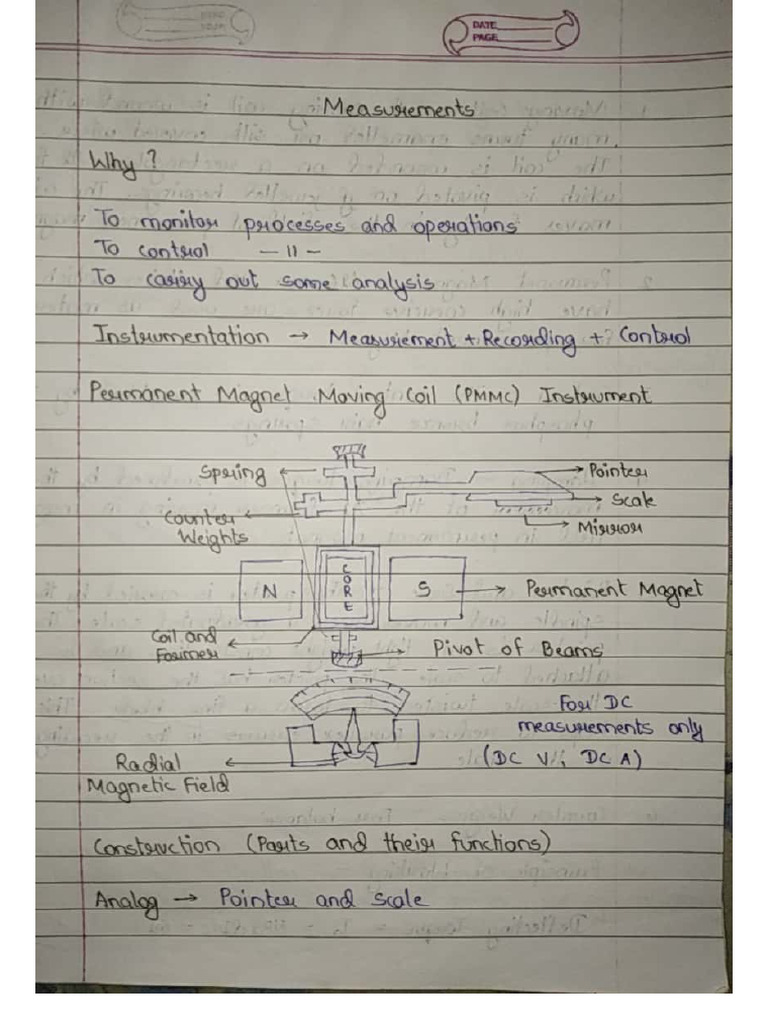 DATE
PAGE
Measurements
Why?
To monitor processes and operations
To control —11—
To carry out some analysis
Instrumentation → Measurement + Recording + Control
Permanent Magnet Moving Coil (PMMC) Instrument
Spring
Pointer
Scale
Counter
Weights
Mirror
CORE
N
S
Permanent Magnet
Coil and
Former
Pivot of Beams
For DC
measurements only
(DC V, DC A)
Radial
Magnetic Field
Construction (Parts and their functions)
Analog → Pointer and scale